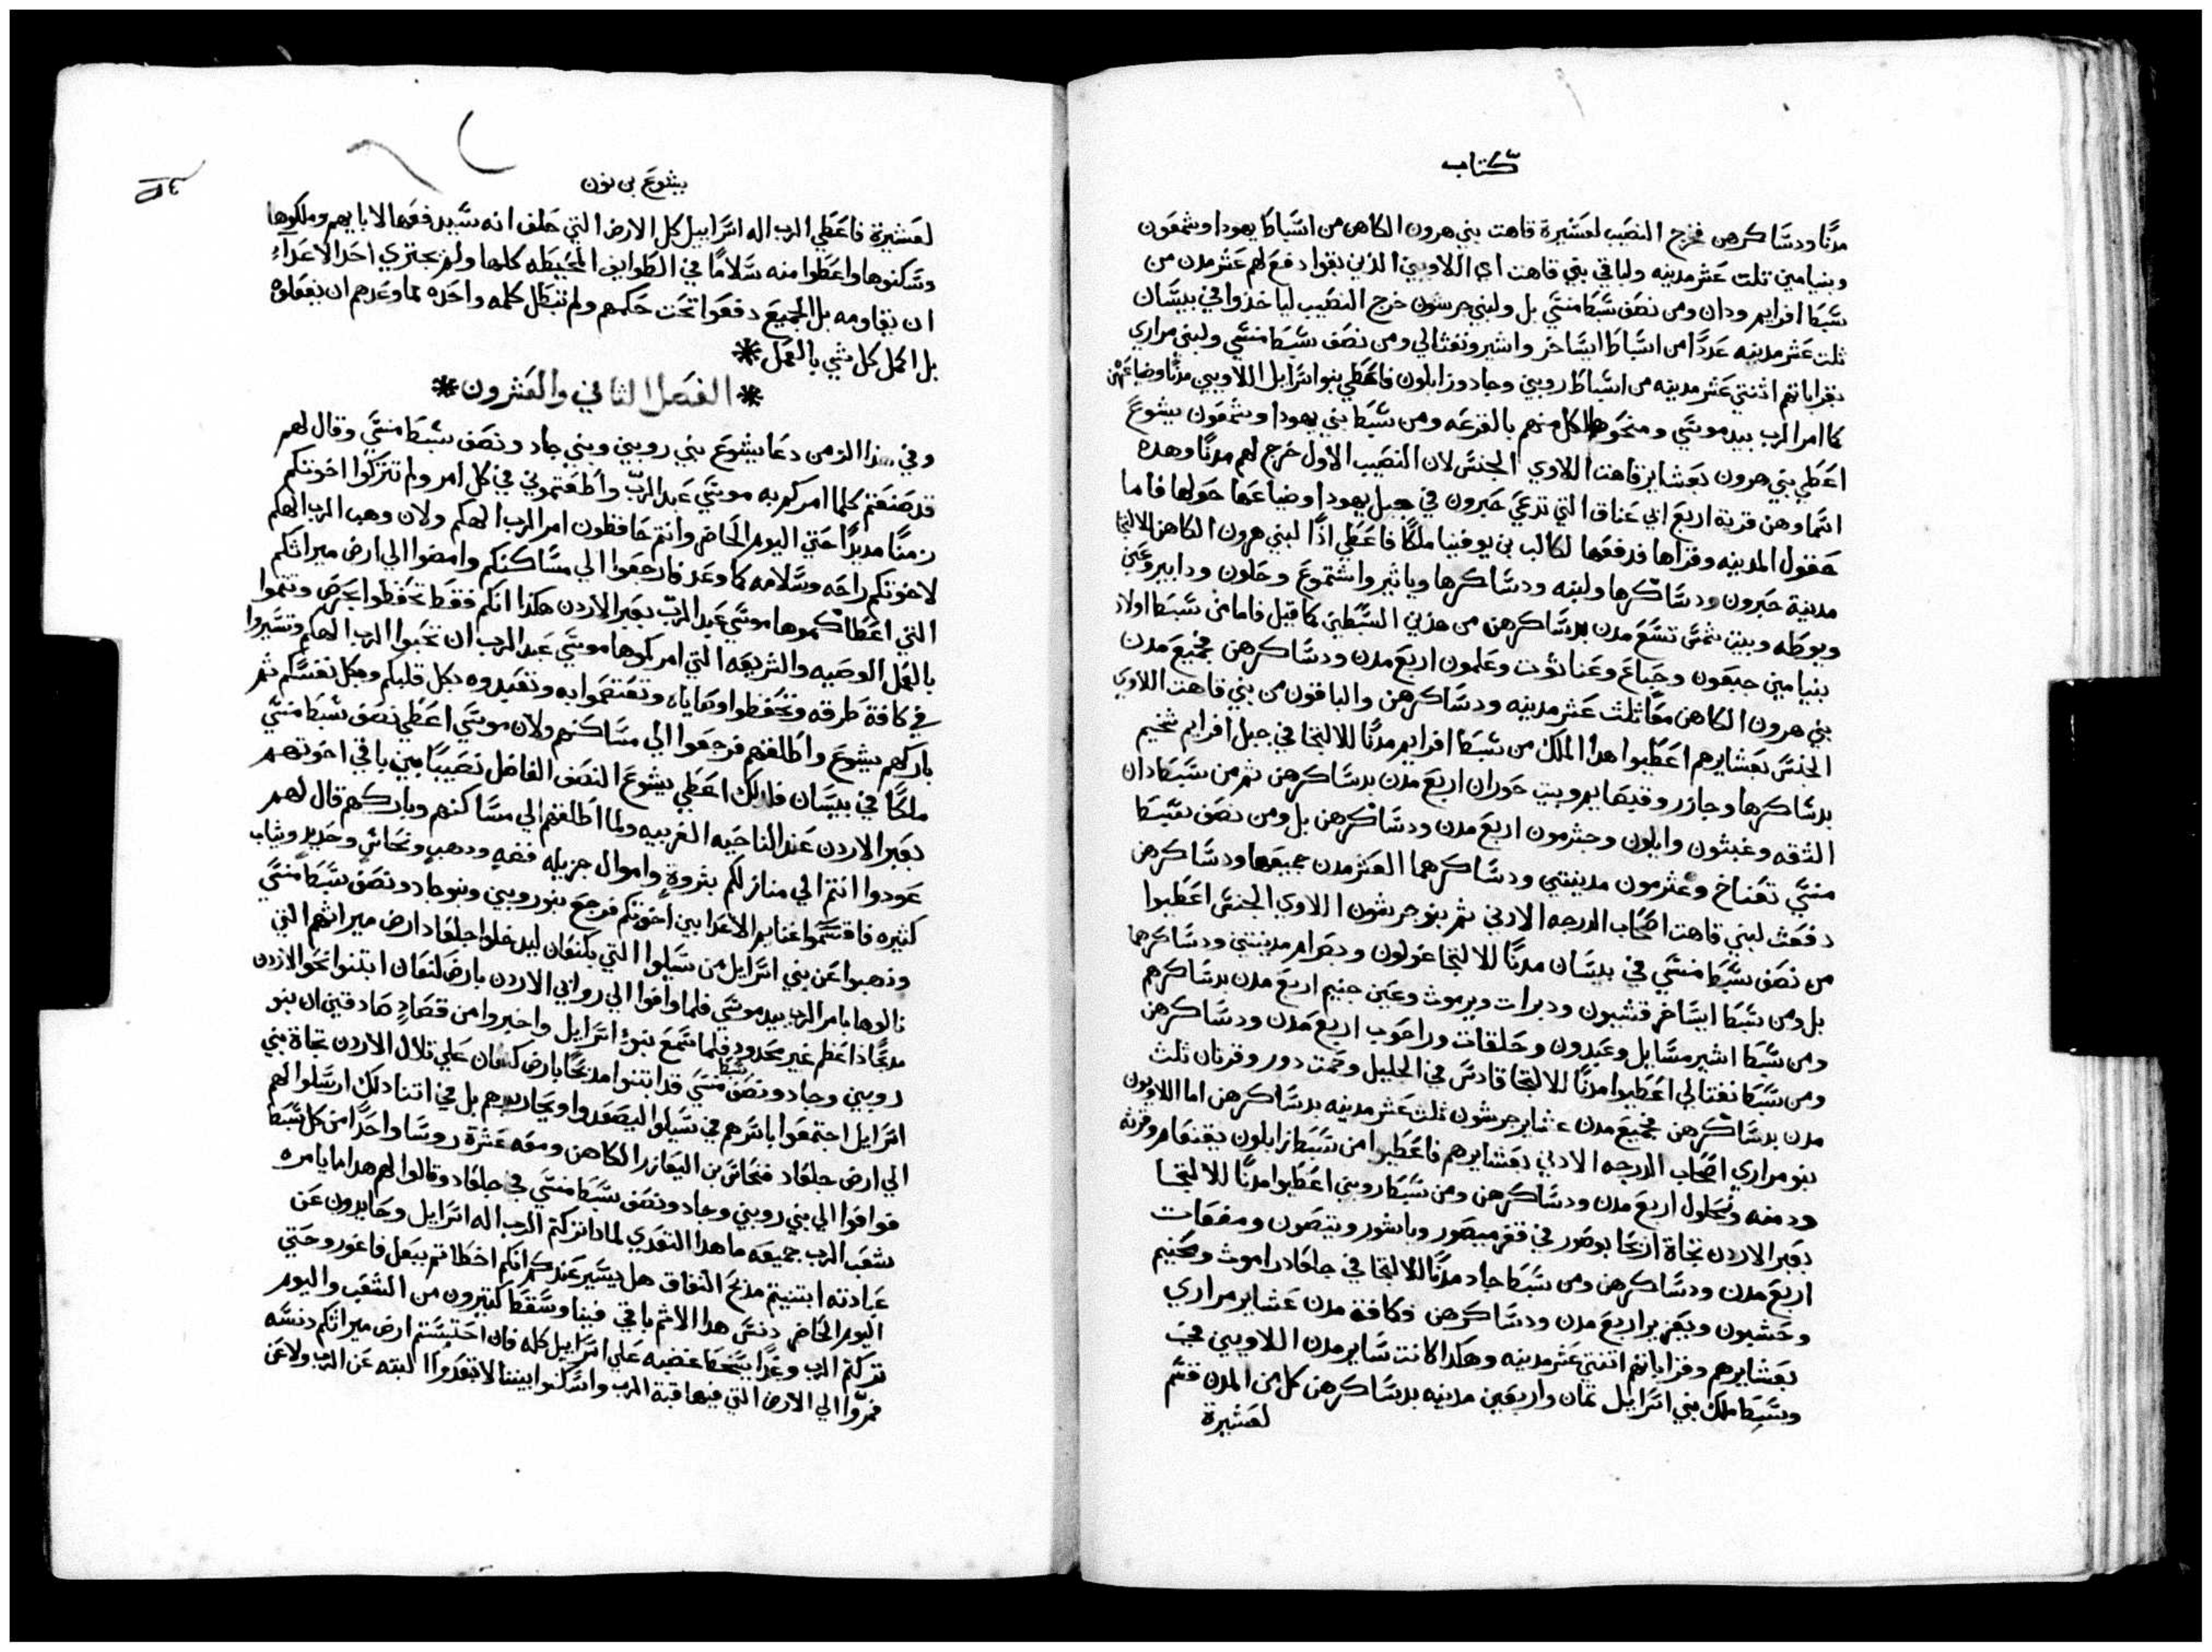 كتاب
مدنًا ودساكرهن فخرج النصيب لعشيرة قاهت بني هرون الكاهن من اسباط يهودا وشمعون
وبنيامين ثلث عشر مدينه ولباقي بني قاهت اي اللاويين الذين بقوا دفع لهم عشر مدن من
سبط افرايم ودان ومن نصف سبط منسي بل ولبني جرشون خرج النصيب لياخذوا في بيسان
ثلث عشر مدينه عددًا من اسباط ايساخر واشير ونفثالي ومن نصف سبط منسي ولبني مراري
بقراباتهم اثنتي عشر مدينه من اسباط روبين وجاد وزابلون فاعطي بنو اسرايل اللاويين مدنًا وضياعهن
كما امر الرب بيد موسي ومنحوها لكل منهم بالقرعه ومن سبط بني يهودا وشمعون يشوع
اعطي بني هرون بعشاير قاهت اللاوي الجنس لان النصيب الاول خرج لهم مدنًا وهده
اسماوهن قرية اربع ابي عناق التي تدعي حبرون في جبل يهودا وضياعها حولها فاما
حقول المدينه وقراها فدفعها لكالب بن يوفنيا ملكًا فاعطي اذًا لبني هرون الكاهن للالتجا
مدينة حبرون ودساكرها ولبنه ودساكرها وياثير واشتموع وحلون ودابير وعين
ويوطه وبيت شمس تسع مدن بدساكرهن من هذين السبطين كما قيل فاما من سبط اولاد
بنيامين جبعون وجباع وعناثوت وعلمون اربع مدن ودساكرهن فجميع مدن
بني هرون الكاهن معًا ثلث عشر مدينه ودساكرهن والباقون من بني قاهت اللاوي
الجنس بعشايرهم اعطيوا هدا الملك من سبط افرايم مدنًا للالتجا في جبل افرايم شخيم
بدساكرها وجازر وقبصايم وبيت حوران اربع مدن بدساكرهن ثم من سبط دان
التقه وغبثون وايلون وجثرمون اربع مدن ودساكرهن بل ومن نصف سبط
منسي تعناخ وعثرمون مدينتي ودساكرهما العشر مدن جميعها ودساكرهن
دفعت لبني قاهت اصحاب الدرجه الادني ثم بنو جرشون اللاوي الجنس اعطيوا
من نصف سبط منسي في بيسان مدنًا للالتجا غولون وبصرام مدينتي ودساكرهما
بل ومن سبط ايساخر قشيون ودبرات ويرموث وعين جنيم اربع مدن بدساكرهم
ومن سبط اشير مسايل وعبدون وحلقات وراحوب اربع مدن ودساكرهن
ومن سبط نفتالي اعطيوا مدنًا للالتجا قادس في الجليل وحمت دور وقرتان ثلث
مدن بدساكرهن فجميع مدن عشاير جرشون ثلث عشر مدينه بدساكرهن اما اللاويون
بنو مراري اصحاب الدرجه الادني بعشايرهم فاعطيوا من سبط زابلون يقنعام وقرثه
ودمنه ونحلول اربع مدن ودساكرهن ومن سبط روبين اعطيوا مدنًا للالتجا
بعبر الاردن تجاة اريحا بوصور في قفر ميصور وباشور ويتصون ومفعات
اربع مدن ودساكرهن ومن سبط جاد مدنًا للالتجا في جلعاد راموث ومحنيم
وحشبون ويعزير اربع مدن ودساكرهن وكافة مدن عشاير مراري
بعشايرهم وقراباتهم اثنتي عشر مدينه وهكدا كانت ساير مدن اللاويين في
وسط ملك بني اسرايل ثمان واربعين مدينه بدساكرهن كل من المدن قسم
لعشيرة
يشوع بن نون
لعشيرة فاعطي الرب اله اسراييل كل الارض التي حلف انه سيدفعها لابايهم وملكوها
وسكنوها واعطوا منه سلامًا في الطوايف المحيطه كلها ولم يجتري احد الاعداء
ان يقاومه بل الجميع دفعوا تحت حكمهم ولم تبطل كلمه واحده مما وعدهم ان يفعلوه
بل اكمل كل شي بالعمل *
* الفصل الثاني والعشرون *
وفي هذا الزمن دعا يشوع بني روبين وبني جاد ونصف سبط منسي وقال لهم
قد صنعتم كلما امركم به موسي عبد الرب واطعتموني في كل امر ولم تتركوا اخوتكم
زمنًا مديدًا حتي اليوم الحاضر وانتم حافظون امر الرب الهكم ولان وهب الرب الهكم
لاخوتكم راحه وسلامه كما وعد فارجعوا الي مساكنكم وامضوا الي ارض ميراثكم
التي اعطاكموها موسي عبد الرب بعبر الاردن هكدا انكم فقط تحفظوا بحرص وتتموا
بالعمل الوصيه والشريعه التي امركموها موسي عبد الرب ان تحبوا الرب الهكم وتسيروا
في كافة طرقه وتحفظوا وصاياه وتعتصموا به وتعبدوه بكل قلبكم وبكل نفسكم ثم
باركهم يشوع واطلقهم فرجعوا الي مساكنهم ولان موسي اعطي نصف سبط منسي
ملكًا في بيسان فلدلك اعطي يشوع النصف الفاضل نصيبًا بين باقي اخوتهم
بعبر الاردن عند الناحيه الغربيه ولما اطلقهم الي مساكنهم وباركهم قال لهم
عودوا انتم الي منازلكم بثروةٍ واموال جزيله فضه ودهب ونحاس وحديد وثياب
كثيره فاقتسموا غنايم الاعدا بين اخوتكم فرجع بنو روبين وبنو جاد ونصف سبط منسي
وذهبوا عن بني اسرايل من سيلوا التي بكنعان ليدخلوا جلعاد ارض ميراثهم التي
نالوها بامر الرب بيد موسي فلما وافوا الي روابي الاردن بارض كنعان ابتنوا نحو الاردن
مدبحًا ذا عظم غير محدود فلما سمع بنو اسرايل واخبروا من قصادٍ صادقين ان بنو
روبين وجاد ونصف سبط منسي قد ابتنوا مدبحًا بارض كنعان علي تلال الاردن تجاة بني
اسرايل اجتمعوا باسرهم في سيلوا ليصعدوا ويحاربوهم بل في اثنا دلك ارسلوا لهم
الي ارض جلعاد فنحاس بن اليعازر الكاهن ومعه عشرة روسا واحدًا من كل سبط
فوافوا الي بني روبين وجاد ونصف سبط منسي في جلعاد وقالوا لهم هدا ما يامره
شعب الرب جميعه ما هدا التعدي لمادا تركتم الرب اله اسرايل وحايدون عن
عبادته ابتنيتم مدبح النفاق هل يسير عندكم انكم اخطاتم ببعل فاغور وحتي
اليوم الحاضر دنس هدا الاثم باقي فينا وسقط كثيرون من الشعب واليوم
تركتم الرب وغدًا يسخط غضبه علي اسراييل كله فان احتسبتم ارض ميراثكم دنسه
فمروا الي الارض التي فيها قبة الرب واسكنوا بيننا الا تبعدوا البته عن الرب ولا عن